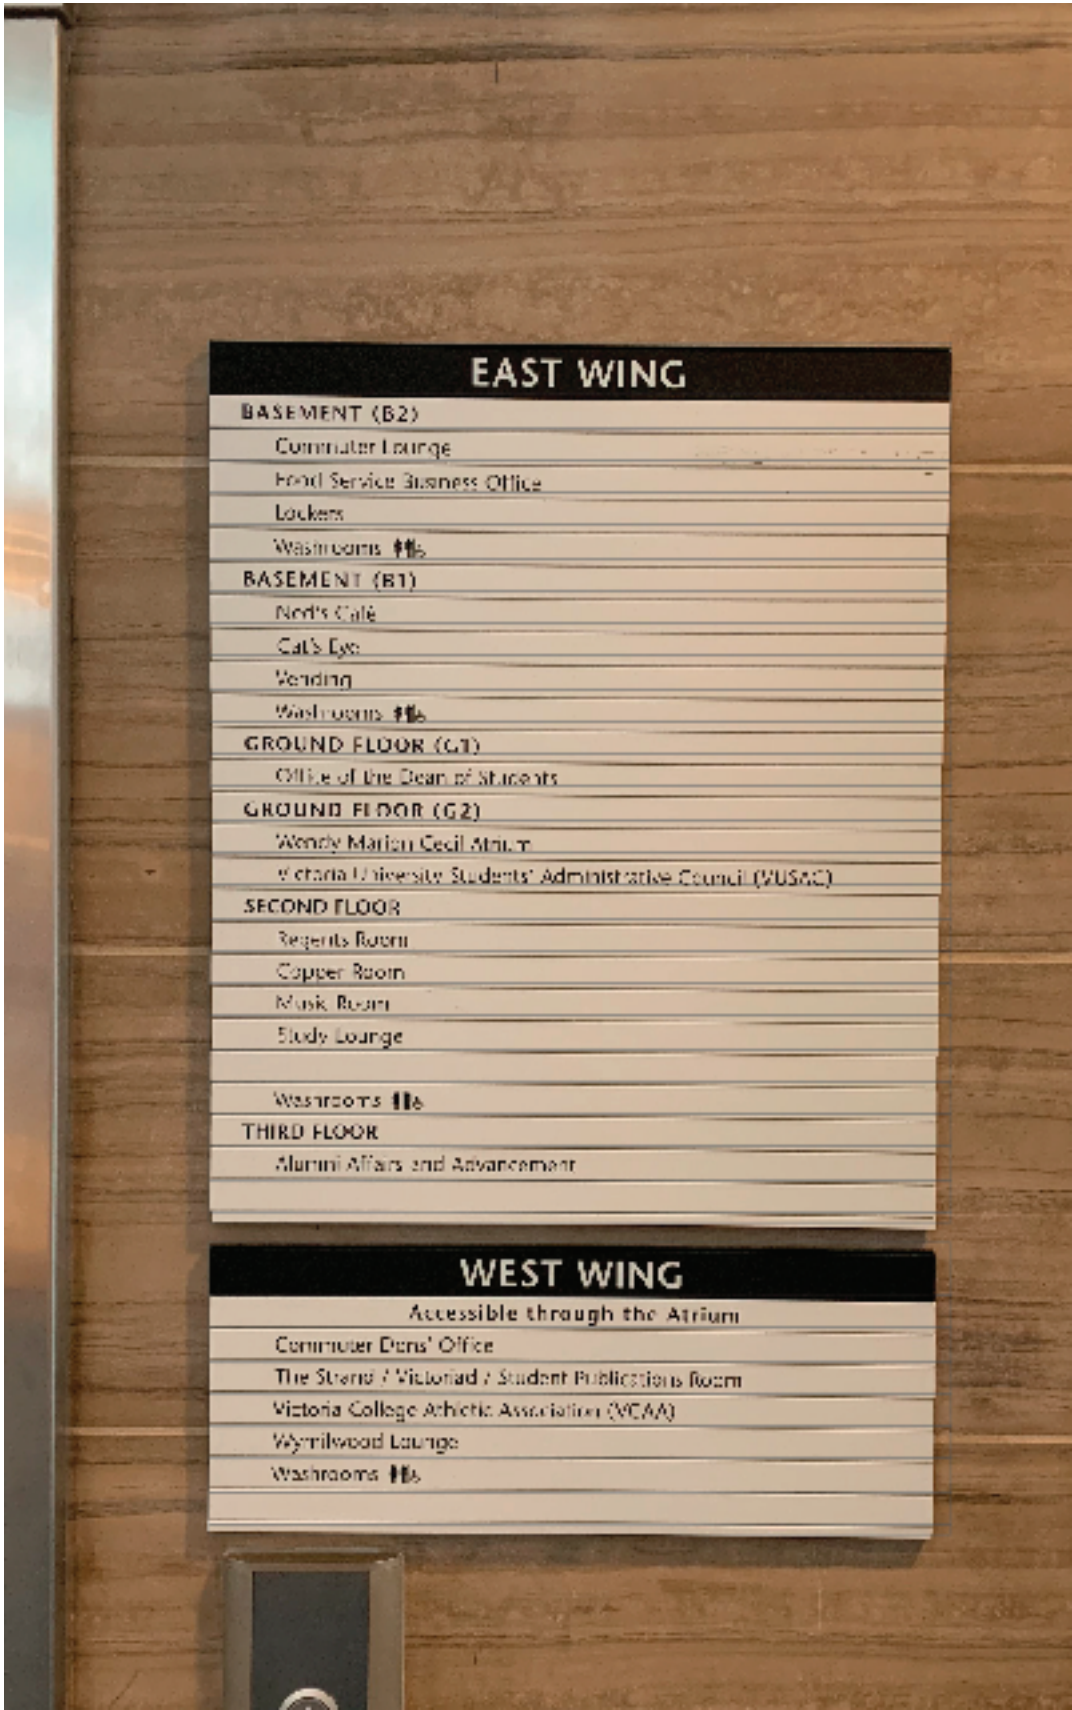 EAST WING
BASEMENT (B2)
Commuter Lounge
Food Service Business Office
Lockers
Washrooms
BASEMENT (B1)
Ned's Café
Cat's Eye
Vending
Washrooms
GROUND FLOOR (G1)
Office of the Dean of Students
GROUND FLOOR (G2)
Wendy Marion Cecil Atrium
Victoria University Students' Administrative Council (VUSAC)
SECOND FLOOR
Regents Room
Copper Room
Music Room
Study Lounge
Washrooms
THIRD FLOOR
Alumni Affairs and Advancement
WEST WING
Accessible through the Atrium
Commuter Dons' Office
The Strand / Victoriad / Student Publications Room
Victoria College Athletic Association (VCAA)
Wymilwood Lounge
Washrooms